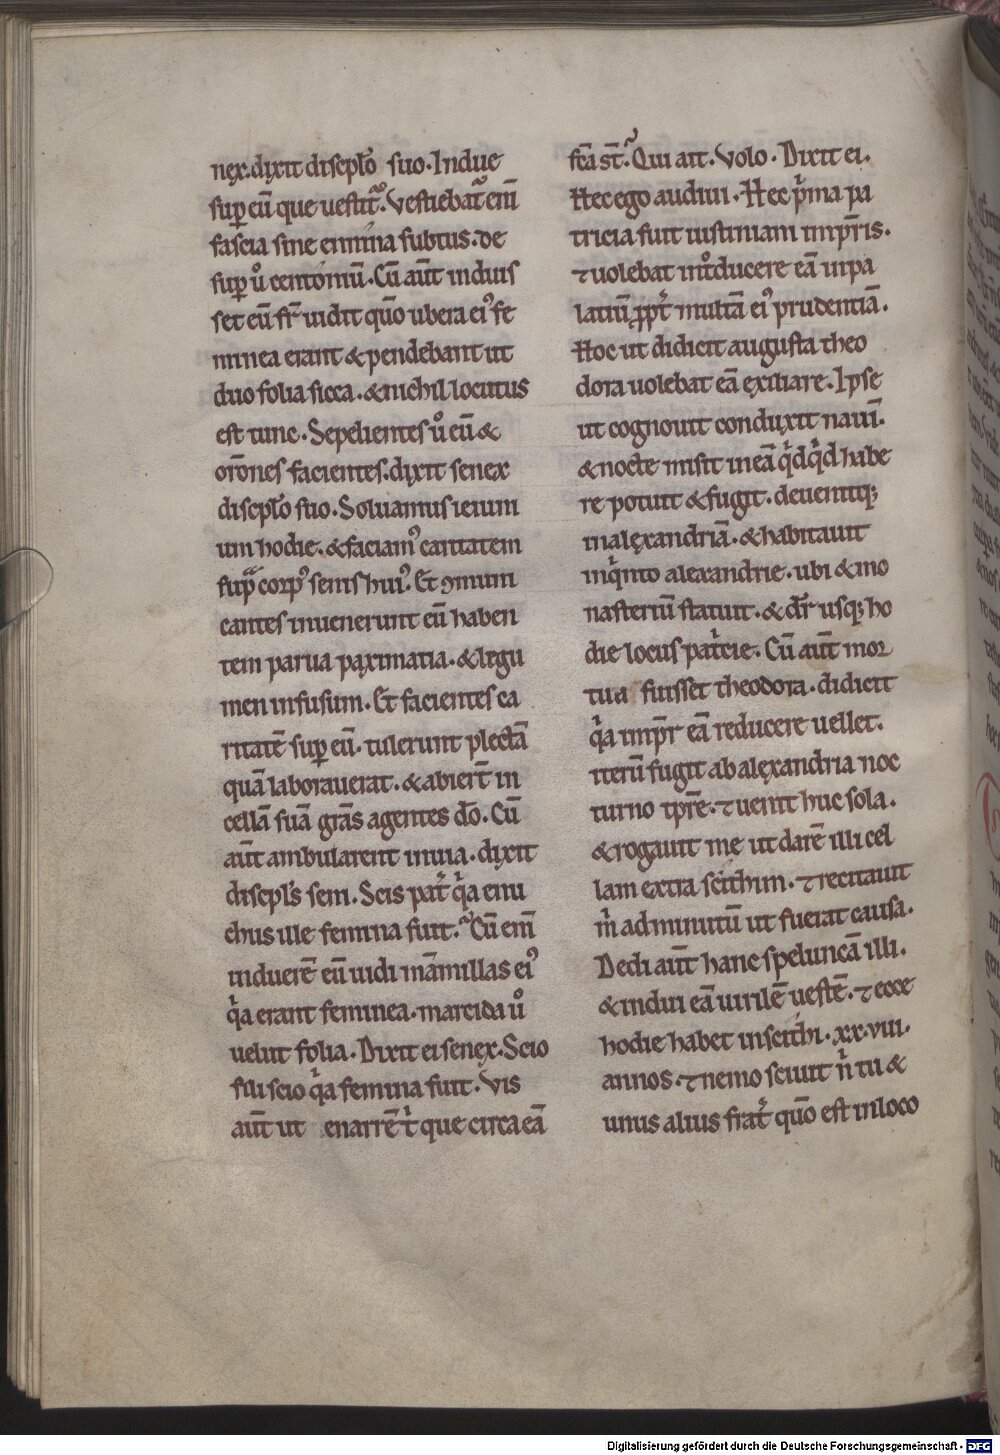 nex. dixit discpło suo. Indue
sup eū que uestitᷓ. Vestiebatᷓ em̄
fascia sine emmina subtus. de
sup ů centōniū. Cū aut̄ induis
set eū fr̄ uidit quō ubera ei᾽ fe
minea erant & pendebant ut
duo folia sicca. & nichil locutus
est tunc. Sepelientes ů eū &
orōnes facientes. dixit senex
discpło suo. Soluamus ieiuni
um hodie. & faciam᾽ caritatem
supᷓ corp᾽ senis hui᾽. Et ꝯmuni
cantes inuenerunt eū haben
tem parua paximatia. & legu
men infusum. Et facientes ca
ritatē sup eū. tulerunt plectā
quā laborauerat. & abierт̄ in
cellā suā grās agentes dō. Cū
aut̄ ambularent in uia. dixit
discpl's seni. Scis patͥ qͥa enu
chus ille femina fuit.ᷓ Cū em̄
induerē eū uidi māmillas ei᾽
qͥa erant feminea. marcida ů
uelut folia. Dixit ei senex. Scio
fili scio qͥa femina fuit. Vis
aut̄ ut enarrē tͥ que circa eā
fc̄a st̄.ᷓ Qui ait. Volo. Dixit ei.
Hec ego audiui. Hec pͥma pa
tricia fuit iustiniani impr̄is.
⁊ uolebat int̊ducere eā in pa
latiū ꝓpt̄ multā ei᾽ prudentiā.
Hoc ut didicit augusta theo
dora uolebat eā exiliare. Ipse
ut cognouit conduxit nauī.
& nocte misit in eā qͥdqͥd habe
re potuit & fugit. deuenitq;
in alęxandriā. & habitauit
in qͥnto alexandrie. ubi & mo
nasteriū statuit. & dr̄ usq; ho
die locus patͥcie. Cū aut̄ mor
tua fuisset theodora. didicit
qͥa impr̄ eā reducere uellet.
iterū fugit ab alęxandria noc
turno tpr̄e. ⁊ uenit huc sola.
& rogauit me ut darē illi cel
lam extra scithim. ⁊ recitauit
m̄ ad minutū ut fuerat causa.
Dedi aut̄ hanc speluncā illi.
& indui eā uirilē uestē. ⁊ ecce
hodie habet in scithi. xx.viii.
annos. ⁊ nemo sciuit nͥ tu &
unus alius frat̄ quō est in loco
Digitalisierung gefördert durch die Deutsche Forschungsgemeinschaft - DFG